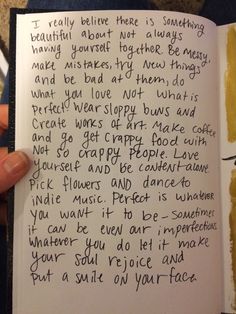 I really believe there is something
beautiful about not always
having yourself together. Be messy,
make mistakes, try new things
and be bad at them, do
what you love not what is
perfect. Wear sloppy buns and
create works of art. Make coffee
and go get crappy food with
not so crappy people. Love
yourself and be content alone.
Pick flowers AND dance to
indie music. Perfect is whatever
you want it to be - sometimes
it can be even our imperfections.
Whatever you do let it make
your soul rejoice and
put a smile on your face.